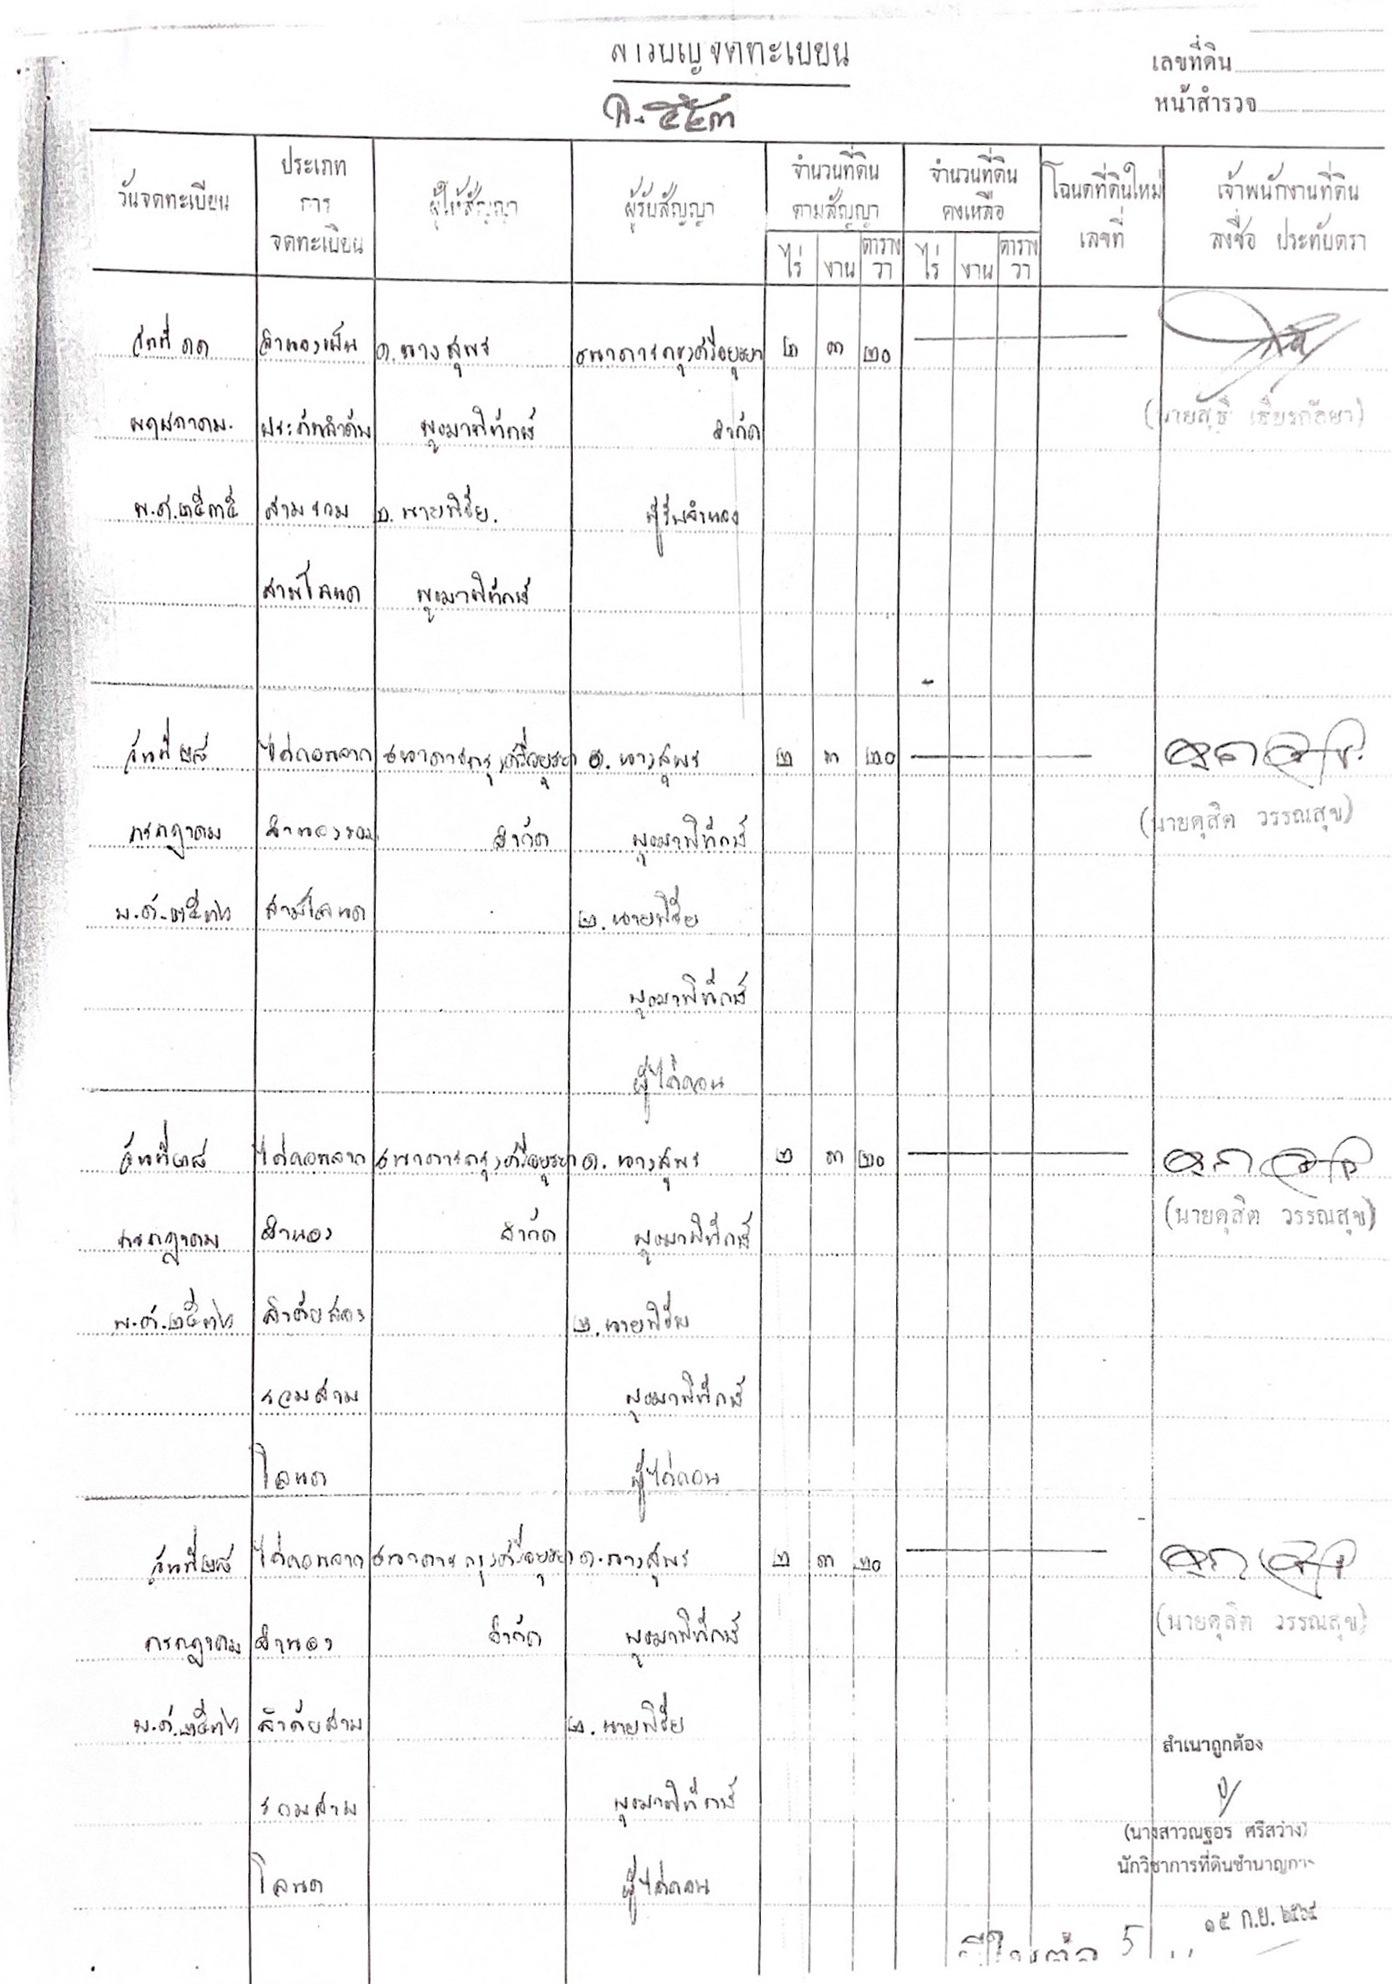 สารบัญจดทะเบียน
เลขที่ดิน
หน้าสำรวจ
วันจดทะเบียน
ประเภท
การ
จดทะเบียน
ผู้ให้สัญญา
ผู้รับสัญญา
จำนวนที่ดิน
ตามสัญญา
จำนวนที่ดิน
คงเหลือ
โฉนดที่ดินใหม่
เลขที่
เจ้าพนักงานที่ดิน
ลงชื่อ ประทับตรา
ไร่ งาน ตารางวา ไร่ งาน ตารางวา
วันที่ ๑๑ จำนองเป็น ๑. นางสุพร ธนาคารกรุงศรีอยุธยา ๒ ๓ ๒๐
พฤษภาคม ประกันลำดับ จำกัด
พ.ศ. ๒๕๓๕ สามรวม ๒. นายพิชัย ผู้รับจำนอง
สามโฉนด
วันที่ ๒๘ ไถ่ถอนจาก ธนาคารกรุงศรีอยุธยา ๑. นางสุพร ๒ ๓ ๒๐
(นายดุสิต วรรณสุข)
กรกฎาคม จำนองรวม จำกัด
สามโฉนด ๒. นายพิชัย
ผู้ไถ่ถอน
วันที่ ๒๘ ไถ่ถอนจาก ธนาคารกรุงศรีอยุธยา ๑. นางสุพร ๒ ๓ ๒๐
(นายดุสิต วรรณสุข)
กรกฎาคม จำนอง จำกัด
ลำดับสอง ๒. นายพิชัย
รวมสาม
โฉนด ผู้ไถ่ถอน
วันที่ ๒๘ ไถ่ถอนจาก ธนาคารกรุงศรีอยุธยา ๑. นางสุพร ๒ ๓ ๒๐
(นายดุสิต วรรณสุข)
กรกฎาคม จำนอง จำกัด
ลำดับสาม ๒. นายพิชัย
รวมสาม
โฉนด ผู้ไถ่ถอน
สำเนาถูกต้อง
(นางสาวณฐอร ศรีสว่าง)
นักวิชาการที่ดินชำนาญการ
๑๕ ก.ย. ๒๕๖๔